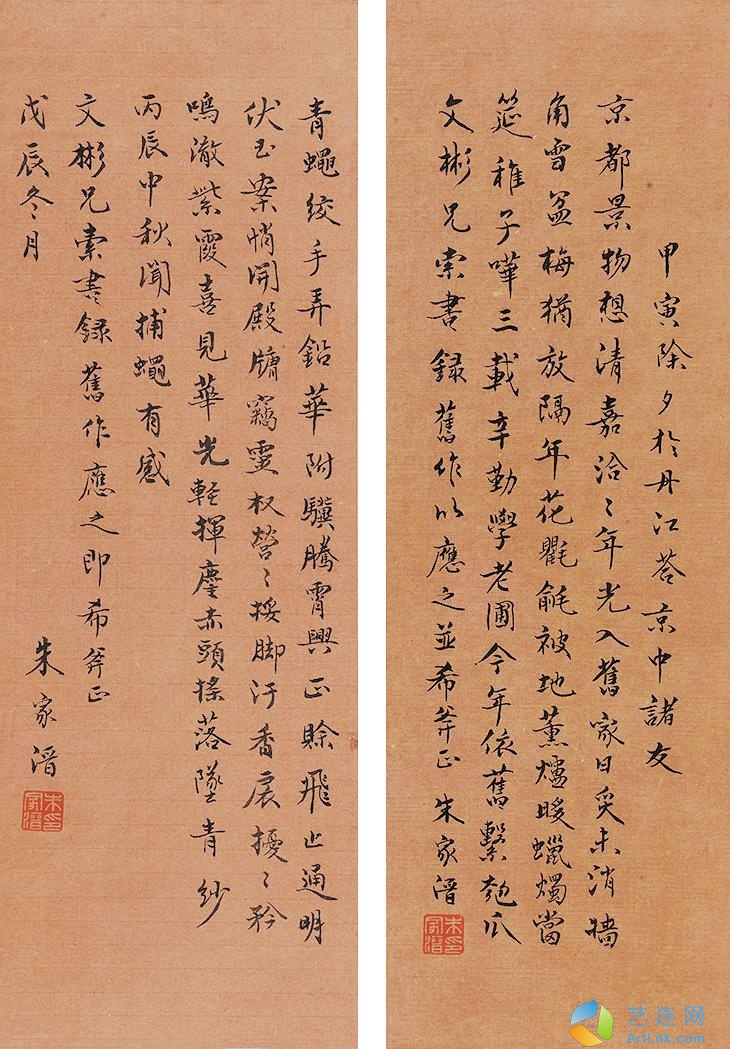 甲寅除夕於丹江答京中諸友
京都景物想清嘉洽〻年光入舊家日炙未消牆
角雪盆梅猶放隔年花氍毹被地薰爐暖蠟燭當
筵稚子嘩三載辛勤學老圃今年依舊繫匏瓜
文彬兄索書錄舊作以應之並希斧正 朱家溍
朱家溍印
青蠅绞手弄鉛華附驥騰霄興正賒飛上通明
伏玉案悄開殿牖竊靈权營〻挼脚汙香扆擾〻矜
鳴澈紫霞喜見華光輕揮麈赤頭搖落墜青紗
丙辰中秋聞捕蠅有感
文彬兄索書録舊作應之即希斧正
戊辰冬月 朱家溍
朱家溍印
艺连网
ArtLnk.com